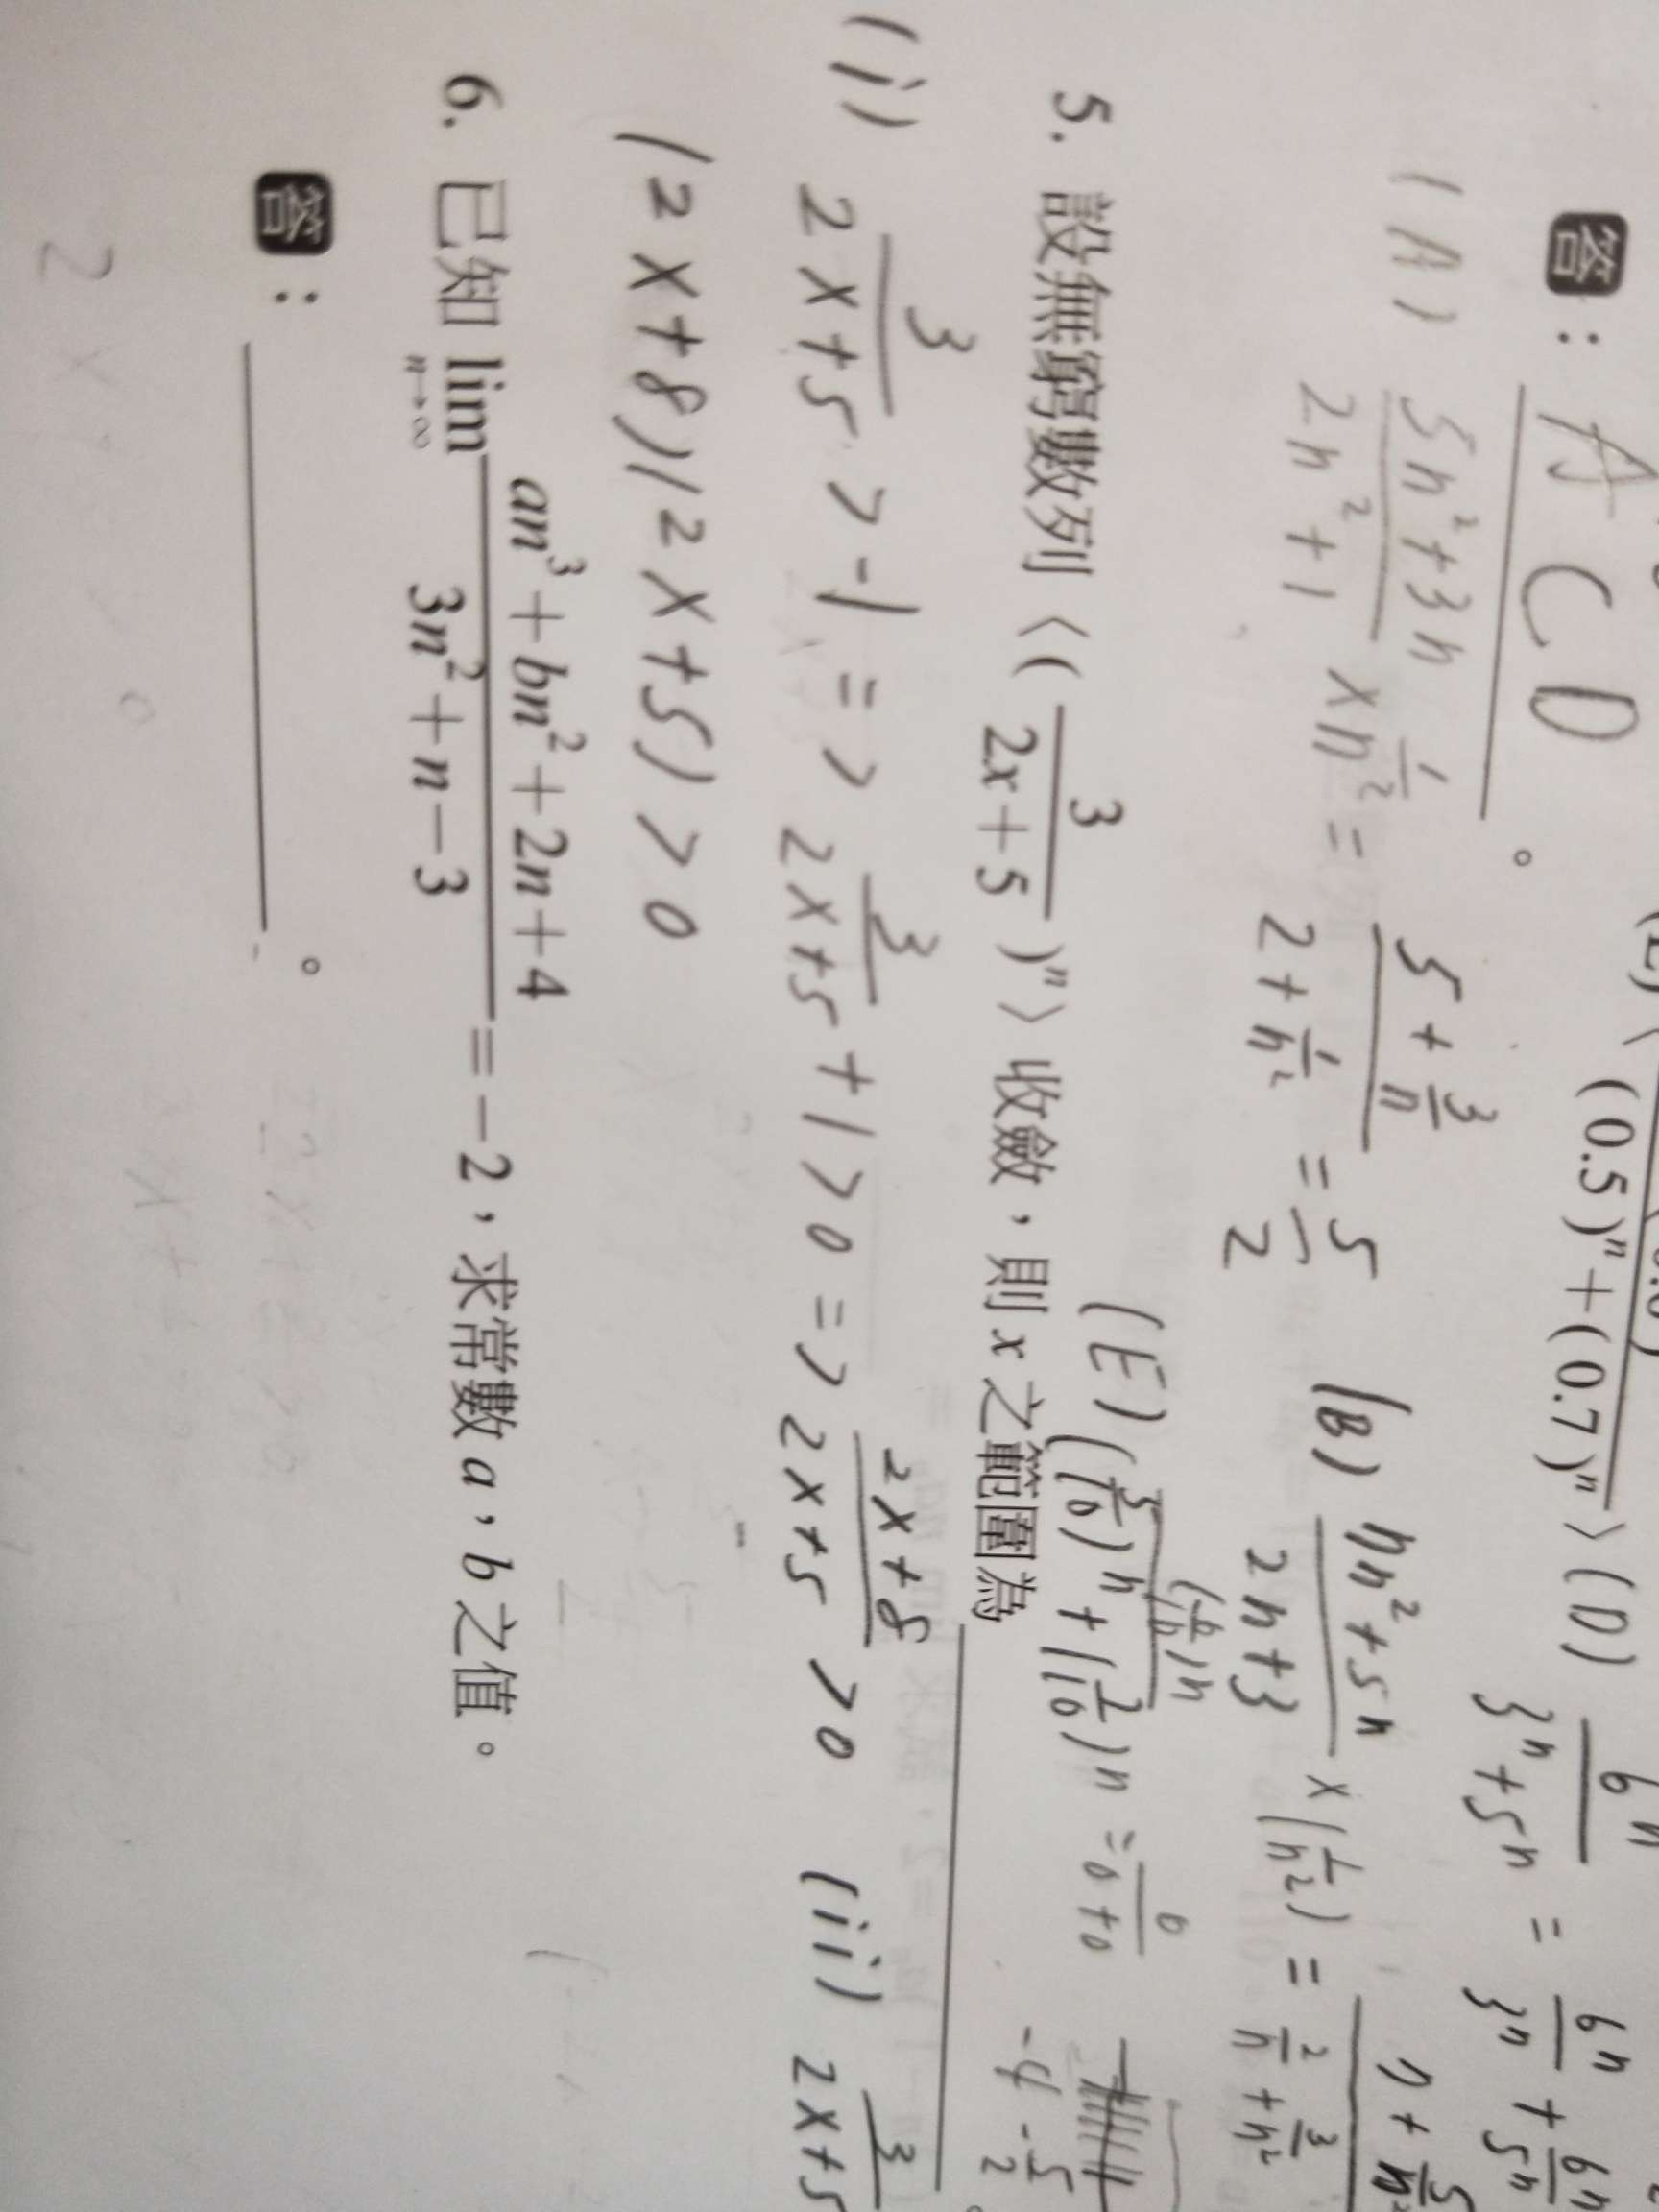 (0.5)ⁿ+(0.7)ⁿ〉(D) 6ⁿ/(3ⁿ+5ⁿ) = 6ⁿ/3ⁿ + 6ⁿ/5ⁿ
答：A C D。
(A) (5n²+3n)/(2n²+1) × 1/n² = (5+3/n)/(2+1/n²) = 5/2 (B) (nn²+5n)/(2n+3) × (1/n²) =
(E)
5. 設無窮數列〈(3/(2x+5))ⁿ〉收斂，則 x 之範圍為
-4 -5/2
(i) 3/(2x+5) > -1 => 3/(2x+5) + 1 > 0 => (2x+8)/(2x+5) > 0 (ii) 3/(2x+5)
(2x+8)(2x+5) > 0
6. 已知 lim n→∞ (an³+bn²+2n+4)/(3n²+n−3) = −2，求常數 a，b 之值。
答：。
2x